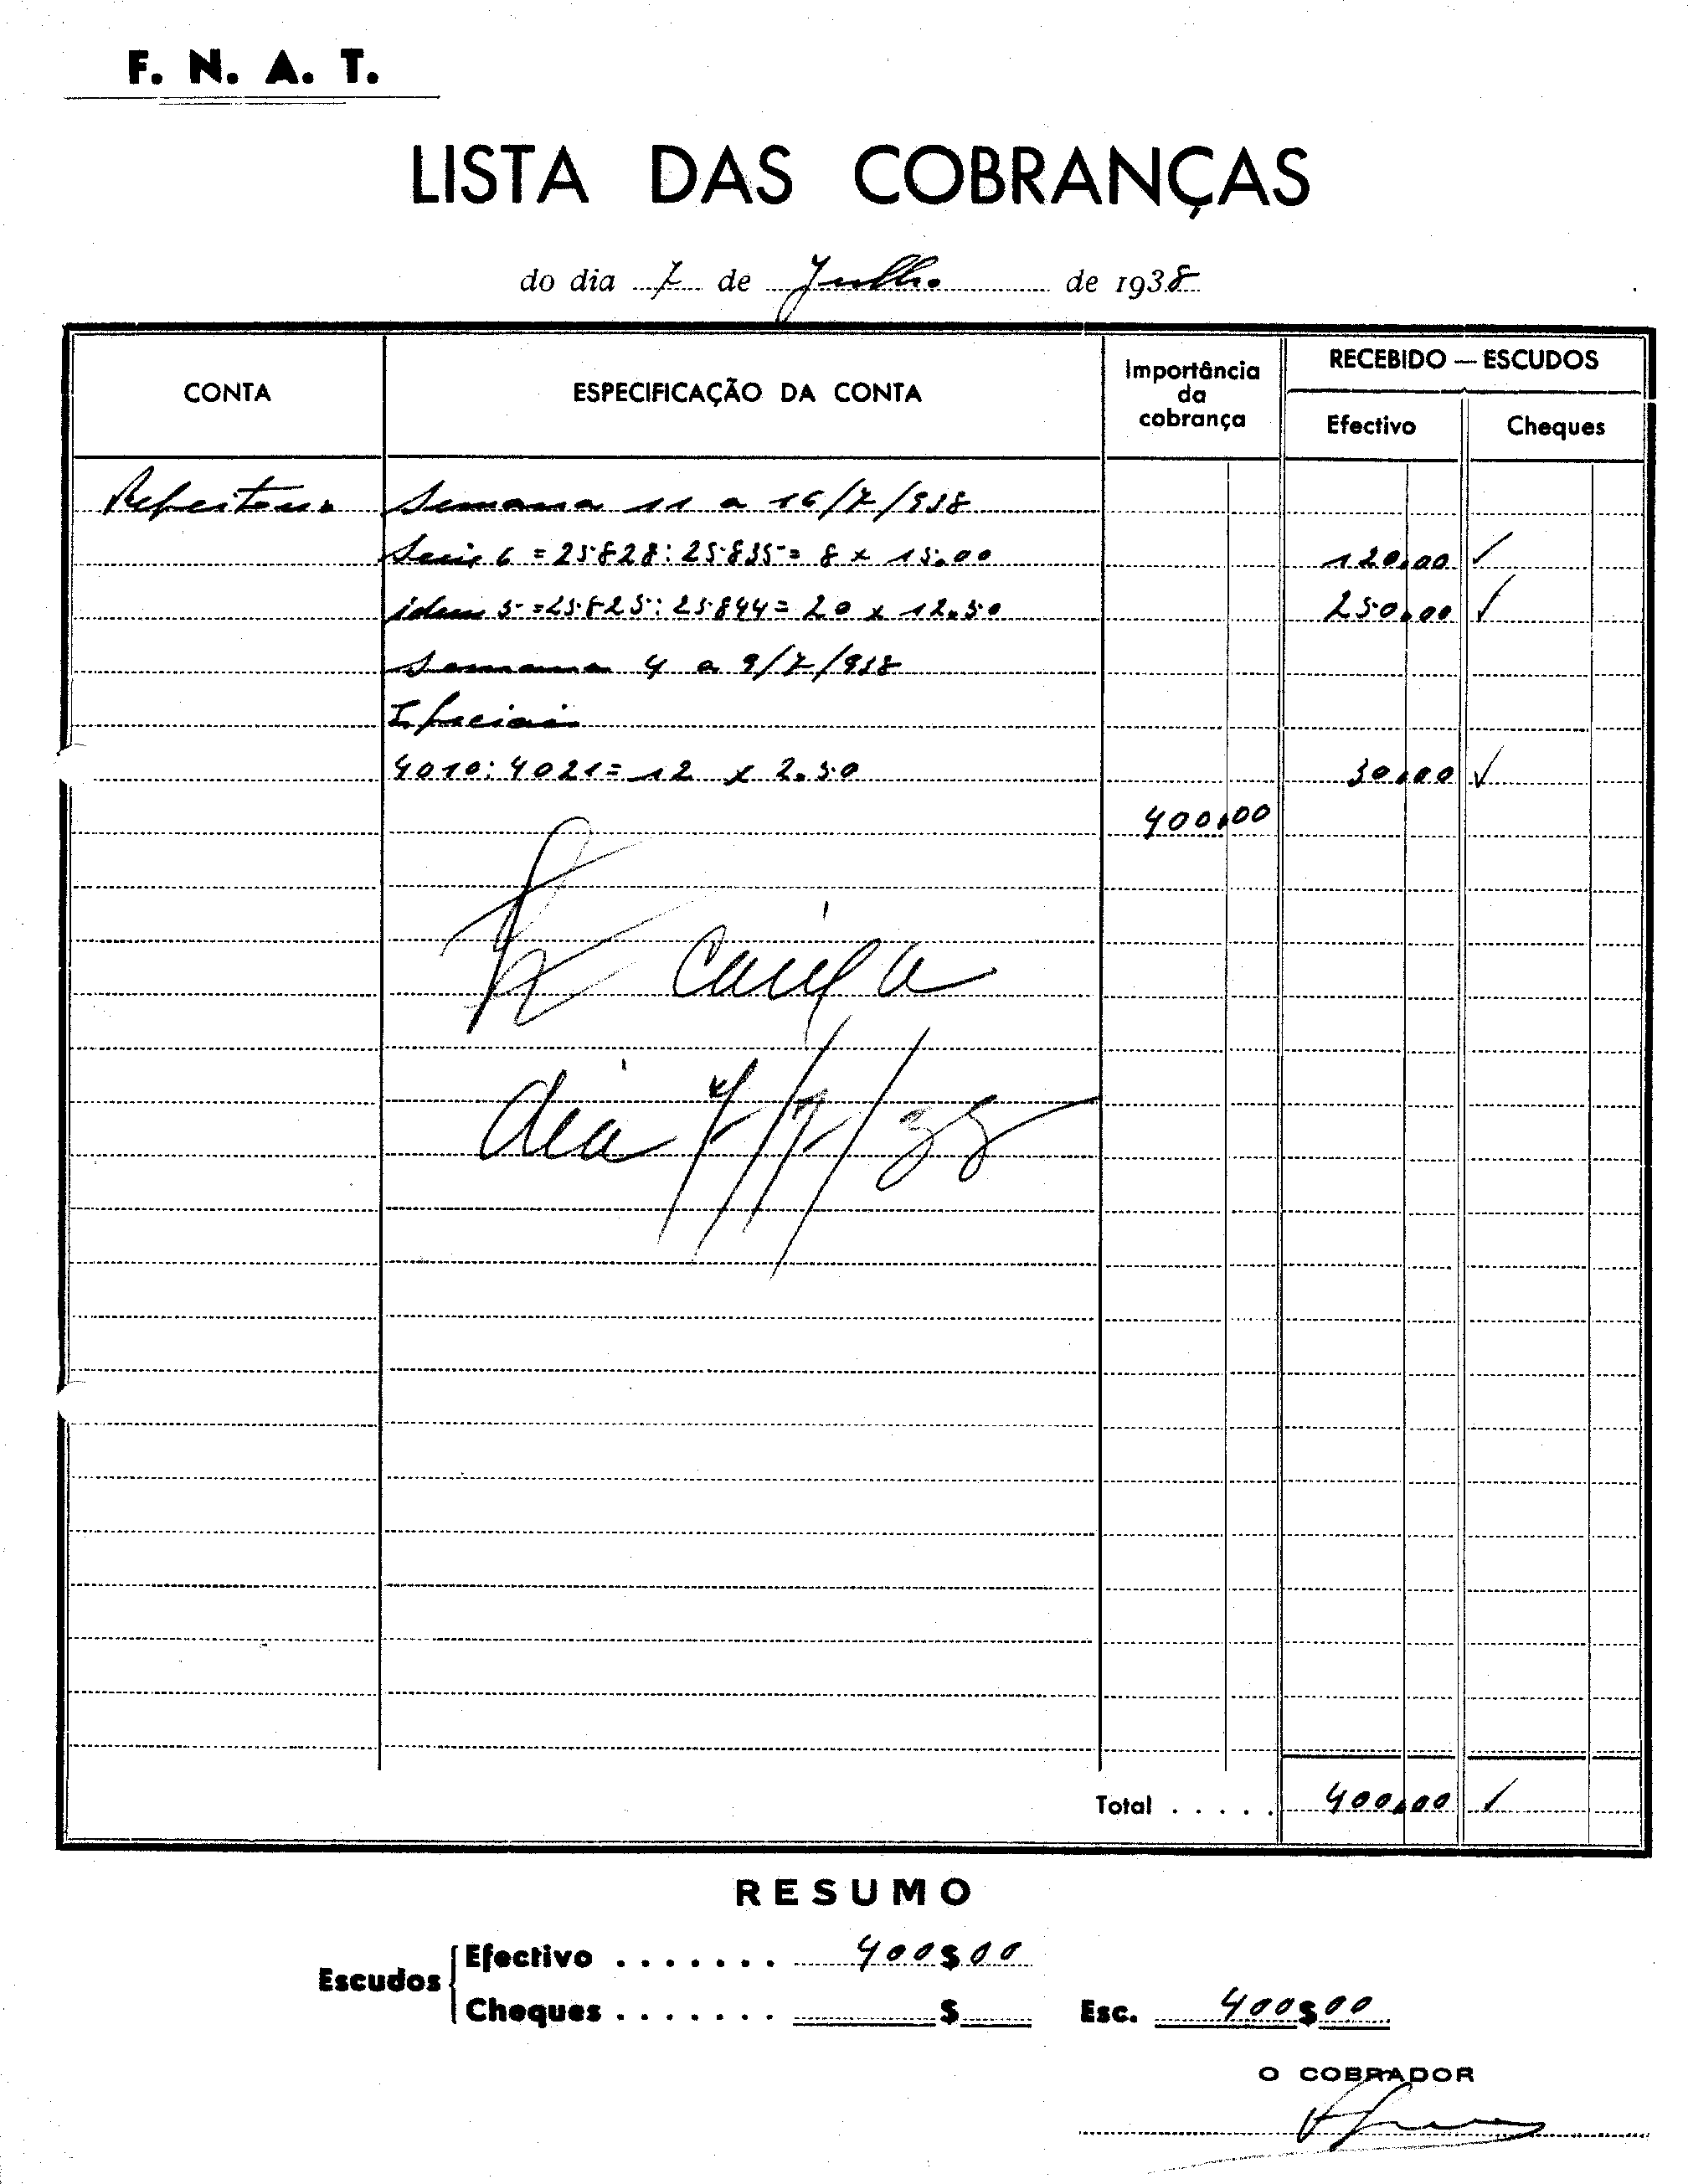 F. N. A. T.
LISTA DAS COBRANÇAS
do dia 7 de Julho de 1938
CONTA ESPECIFICAÇÃO DA CONTA Importância da cobrança RECEBIDO — ESCUDOS
Efectivo Cheques
Refeitorio Semana 11 a 16/7/938
Serie 6 = 25.828: 25.835 = 8 x 15.00 120,00 ✓
idem 5 = 25.825: 25.844 = 20 x 12.50 250,00 ✓
Semana 4 a 9/7/938
Especiais
4010: 4021 = 12 x 2.50 30,00 ✓
400,00
Caixa
dia 7/7/38
Total . . . . . 400,00 ✓
RESUMO
Escudos Efectivo . . . . . . . 400$00
Cheques . . . . . . . $ Esc. 400$00
O COBRADOR